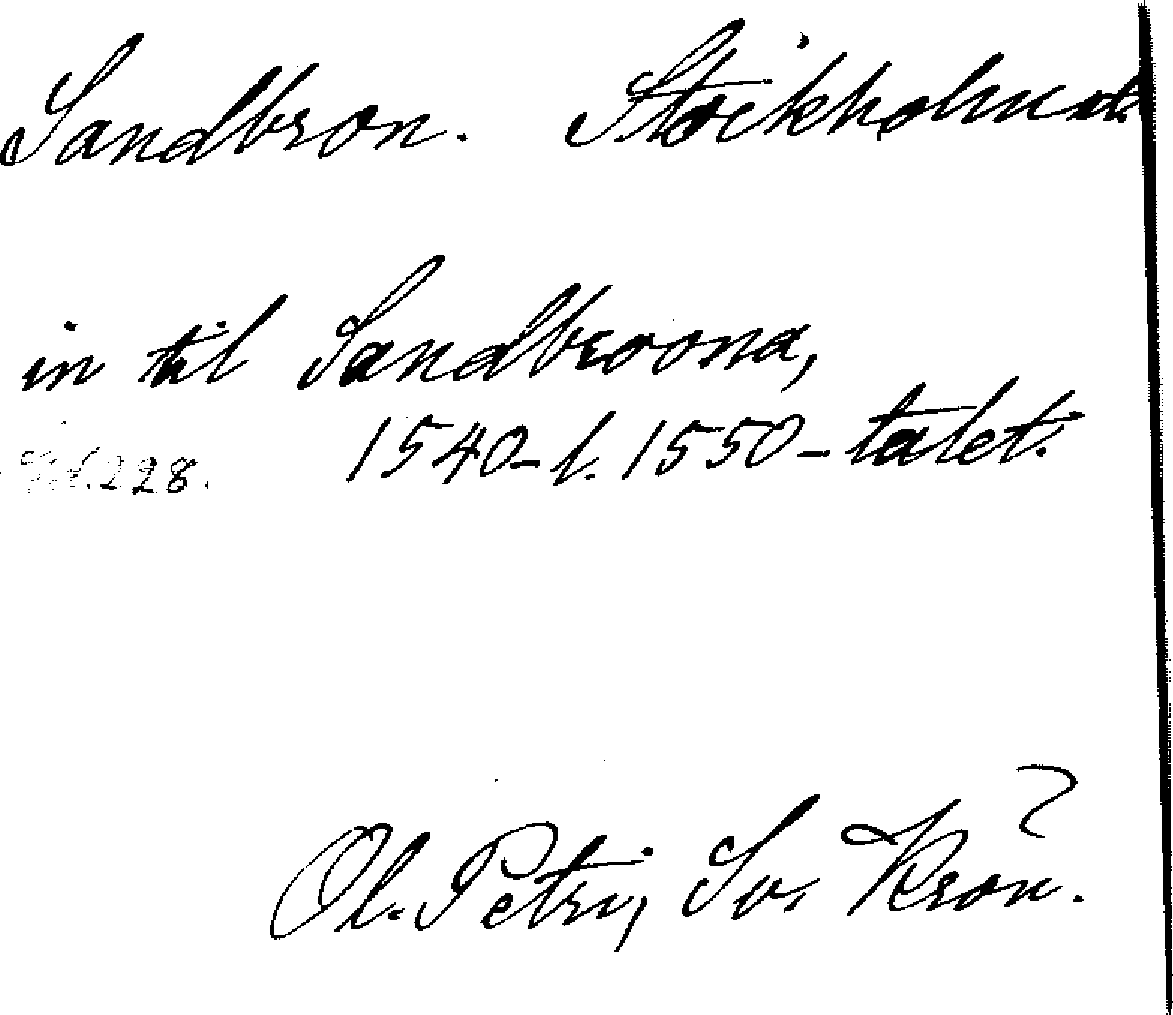 Sandbron. Stockholm st.
in til Sandbroona,
228. 1540- l. 1550-talet.
Ol. Petri, Sv. Krön.